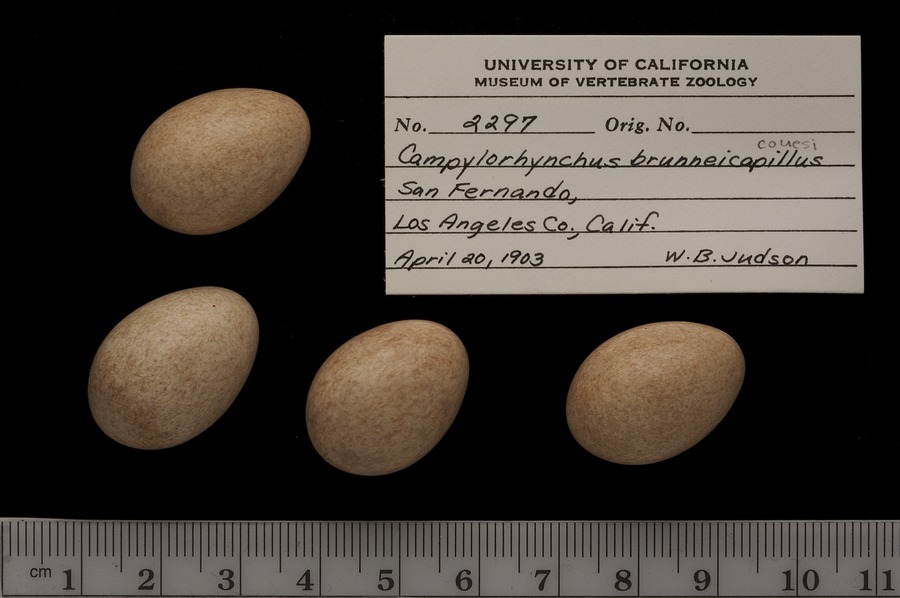 UNIVERSITY OF CALIFORNIA
MUSEUM OF VERTEBRATE ZOOLOGY
No. 2297 Orig. No.
couesi
Campylorhynchus brunneicapillus
San Fernando,
Los Angeles Co., Calif.
April 20, 1903 W. B. Judson
cm 1 2 3 4 5 6 7 8 9 10 11